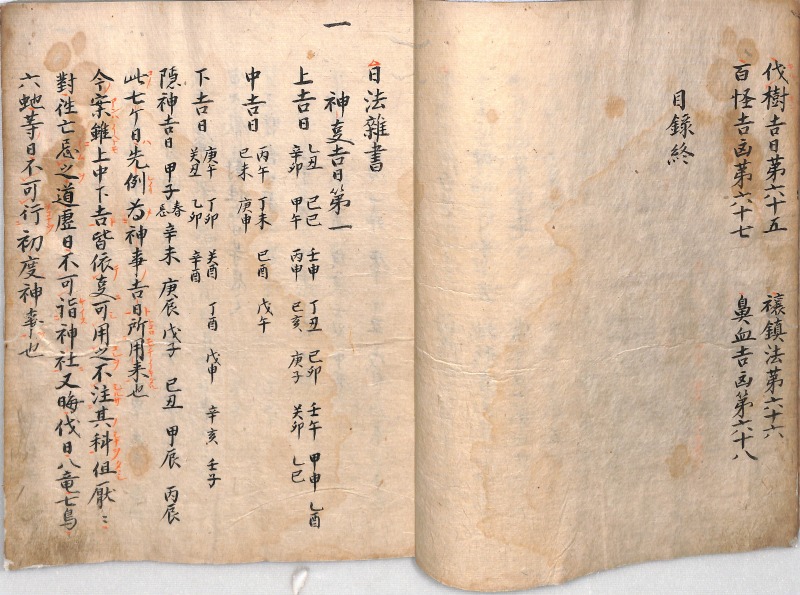 伐樹吉日第六十五　禳鎮法第六十六
百怪吉凶第六十七　鼻血吉凶第六十八
目録終
一
日法雜書
神叓吉日第一
上吉日　乙丑　己巳　壬申　丁丑　己卯　壬午　甲申　乙酉
辛卯　甲午　丙申　己亥　庚子　癸卯　乙巳
中吉日　丙午　丁未　己酉　戊午
己未　庚申
下吉日　庚午　丁卯　癸酉　丁酉　戊申　辛亥　壬子
癸丑　乙卯　辛酉
隠神吉日　甲子春忌　辛未　庚辰　戊子　己丑　甲辰　丙辰
此七ケ日先例為神事吉日所用来也
今案雖上中下吉皆依叓可用之不注其科但厭ミ
對往亡忌之道虚日不可詣神社又晦伐日八竜七鳥
六虵等日不可行初度神事也